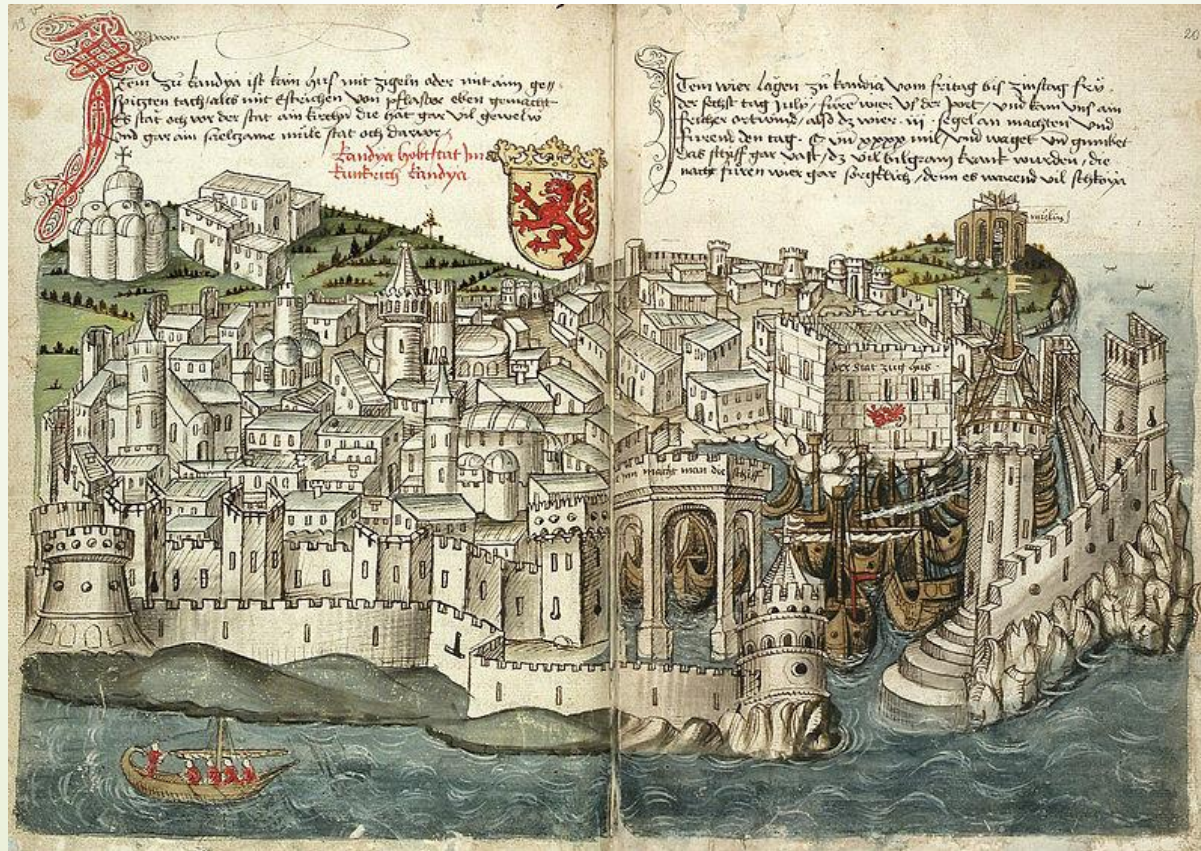 Item zu kandya ist kain hus mit zigeln oder mit aim ge//
spitzten tach / als mit Estrichen von pflaster eben gemacht
Es stat och vor der stat ain kirchen die hat gar vil gewelw
und gar ain säelzame müle stat och darvor
kandya hobtstat Im
kunkrich kandya
Item wier lagen zu kandia vom fritag bis zinstag fry
der sechst tag July / fure wier vs der port / und kam vns ain
frischer ortwind / also dz wier iii segel an machten und
furend den tag C und xxxx mil / und waget und gumbet
das schyff gar vast / dz vil bilgram krank wurden / die
nacht furen wier gar sorgklich / denn es warend vil schkoya
mülin
der stat zug hus
man die schiff
20